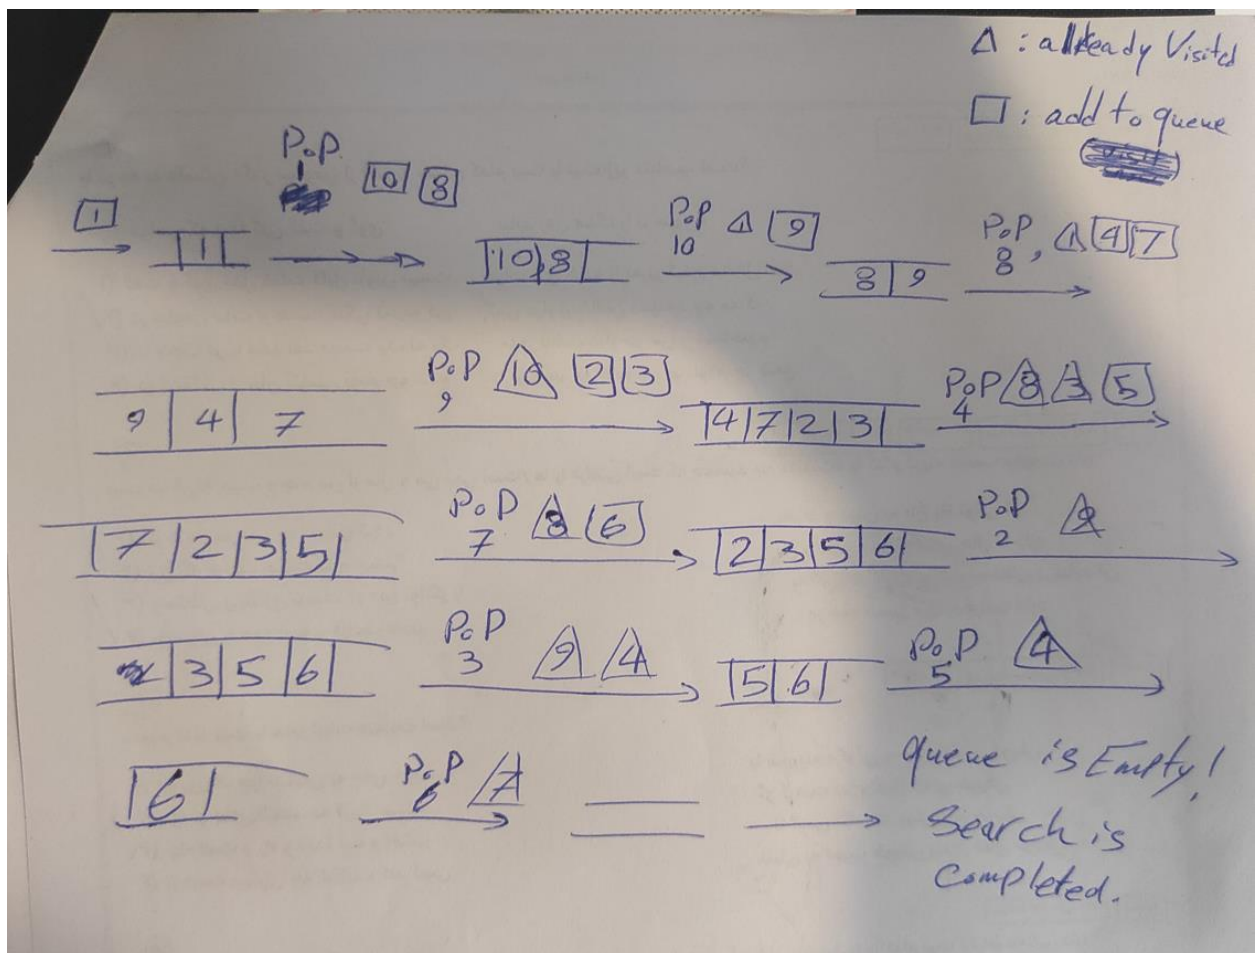 △ : already Visited
□ : add to queue
1
1
PoP 1 10 8
10 8
PoP 10 1 9
8 9
PoP 8, 1 4 7
9 4 7
PoP 9 10 2 3
4 7 2 3
PoP 4 8 3 5
7 2 3 5
PoP 7 8 6
2 3 5 6
PoP 2 9
3 5 6
PoP 3 9 4
5 6
PoP 5 4
6
PoP 6 7
queue is Empty!
Search is
Completed.